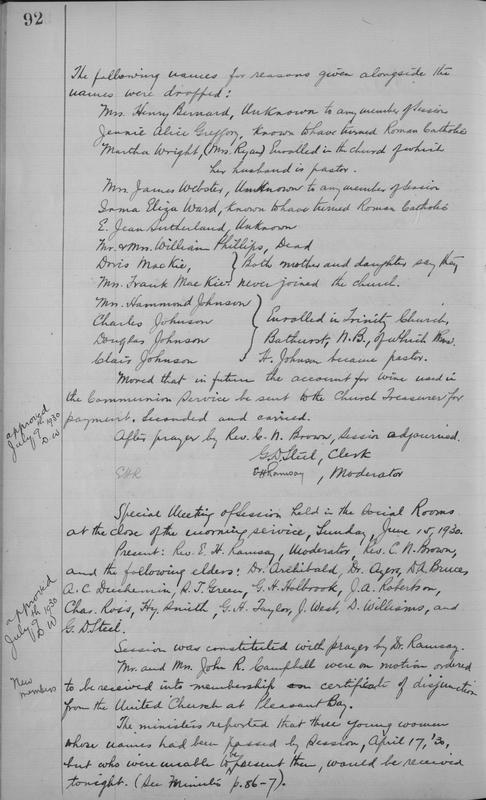 92
The following names for reasons given alongside the
names were dropped:
Mrs. Henry Bernard, Unknown to any member of Session
Jennie Alice Gregory, known to have turned Roman Catholic
Martha Wright, (Mrs. Ryan) Enrolled in the church of which
her husband is pastor.
Mrs. James Webster, Unknown to any member of Session
Irma Eliza Ward, known to have turned Roman Catholic
E. Jean Sutherland, Unknown
Mr. & Mrs. William Phillips, Dead
Doris MacKie, } Both mother and daughter say they
Mrs. Frank MacKie } never joined the church.
Mrs. Hammond Johnson
Charles Johnson } Enrolled in Trinity Church,
Douglas Johnson } Bathurst, N.B., of which Rev.
Clair Johnson } H. Johnson became pastor.
Moved that in future the account for wine used in
the Communion Service be sent to the Church Treasurer for
payment. Seconded and carried.
approved
July 9th 1930
D W
After prayer by Rev. C. N. Brown, session adjourned.
G. D. Steel, Clerk
EHR
E H Ramsay, Moderator
Special Meeting of Session held in the Social Rooms
at the close of the morning service, Sunday, June 15, 1930.
Present: Rev. E. H. Ramsay, Moderator, Rev. C. N. Brown,
and the following elders: Dr. Archibald, Dr. Ayer, D. L. Bruce,
A. C. Duchemin, R. T. Green, G. H. Holbrook, J. A. Robertson,
Chas. Ross, Hy. Smith, G. H. Taylor, J. West, D. Williams, and
G. D. Steel.
approved
July 9th 1930
D W
Session was constituted with prayer by Dr. Ramsay.
New
members
Mr. and Mrs. John R. Campbell were on motion ordered
to be received into membership on certificate of disjunction
from the United Church at Pleasant Bay.
The ministers reported that three young women
whose names had been passed by Session, April 17, '30,
but who were unable to be present then, would be received
tonight. (See Minutes p. 86-7).